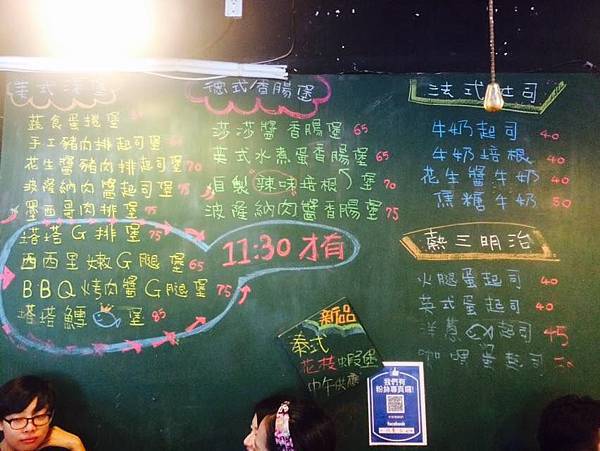 美式漢堡
蔬食蛋捲堡
手工豬肉排起司堡
花生醬豬肉排起司堡 70
波羅納肉醬起司堡 75
墨西哥肉排堡 75
塔塔G排堡 75
西西里嫩G腿堡 65
BBQ烤肉醬G腿堡 75
塔塔鱈堡 85
11:30才有
德式香腸堡
莎莎醬香腸堡 65
英式水煮蛋香腸堡 65
自製辣味培根堡 70
波羅納肉醬香腸堡 75
新品
泰式
花枝蝦堡
中午供應
我們有
粉絲專頁囉!
facebook
法式吐司
牛奶起司 40
牛奶培根 40
花生醬牛奶 30
焦糖牛奶 30
熱三明治
火腿蛋起司 40
英式蛋起司 40
洋蔥起司 45
咖哩蛋起司